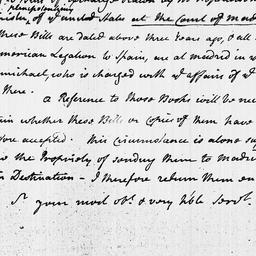 plenipotentiary
of ye united States at the Court of mad
these Bills are dated above three Years ago, & all
merican Legation to Spain, are at madrid in
michael, who is charged with ye affairs of ye
there.
a Reference to those Books will be nec
in whether these Bills or Copies of them have
you accepted. This Circumstance is alone su
to the Propriety of sending them to madri
Destination – I therefore return them en
Sr your most obt & very hble Servt.